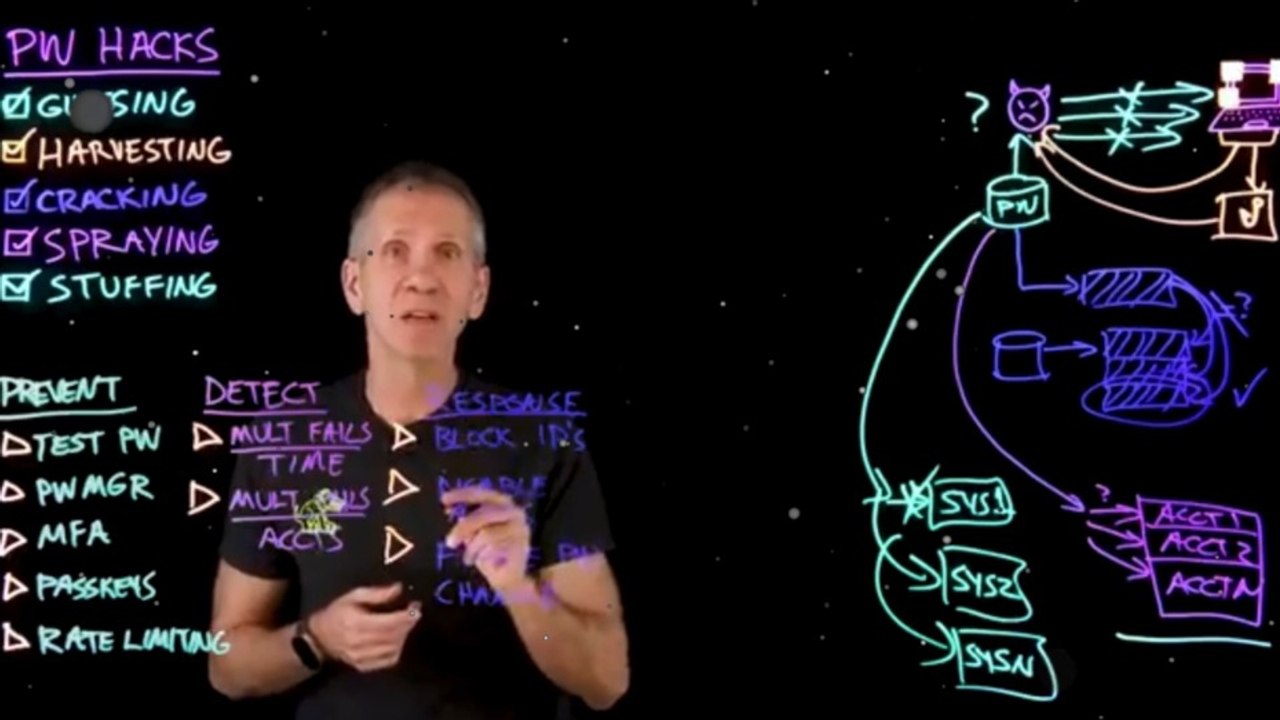 PW HACKS
GUESSING
HARVESTING
CRACKING
SPRAYING
STUFFING
PREVENT
TEST PW
PWMGR
MFA
PASSKEYS
RATE LIMITING
DETECT
MULT FAILS
TIME
MULT FAILS
ACCTS
RESPONSE
BLOCK IP'S
DISABLE
PW
CHANGE
?
PW
?
SYS1
SYS2
SYSN
?
ACCT 1
ACCT 2
ACCT N